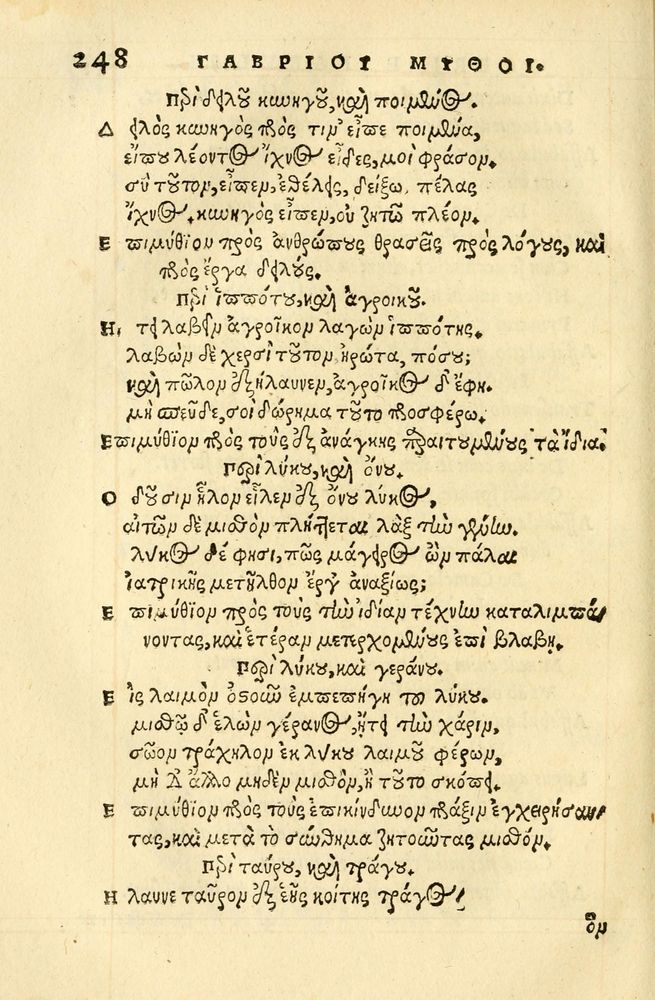 248 ΓΑΒΡΙΟΥ ΜΥΘΟΙ.
Περὶ δειλοῦ κυνηγοῦ, καὶ ποιμένος.
Δειλὸς κυνηγὸς πρός τιν' εἶπε ποιμένα,
εἴπου λέοντος ἴχνος εἶδες, μοι φράσον.
σὺ τοῦτον, εἶπεν, ἐθέλεις, δείξω πέλας
ἴχνος. κυνηγὸς εἶπεν, οὐ ζητῶ πλέον.
Ἐπιμύθιον πρὸς ἀνθρώπους θρασεῖς πρὸς λόγους, καὶ
πρὸς ἔργα δειλούς.
Περὶ ἱππότου, καὶ ἀγροίκου.
Ηιτει λαβεῖν ἀγροῖκον λαγὼν ἱππότης.
λαβὼν δὲ χερσὶ τοῦτον ἠρώτα, πόσου;
καὶ πῶλον ἐξήλαυνεν, ἀγροῖκος δ' ἔφη.
μὴ σπεῦδε, σοὶ δώρημα τοῦτο προσφέρω.
Ἐπιμύθιον πρὸς τοὺς ἐξ ἀνάγκης προϊεμένους τὰ ἴδια.
Περὶ λύκου, καὶ ὄνου.
Οδοῦσιν ἧλον εἷλεν ἐξ ὄνου λύκος,
αἰτῶν δὲ μισθὸν πλήττεται λὰξ τὴν γένυν.
λύκος δέ φησι, πῶς μάγειρος ὢν πάλαι
ἰατρικῆς μετῆλθον ἔργ' ἀναξίως;
Ἐπιμύθιον πρὸς τοὺς τὴν ἰδίαν τέχνην καταλιμπά
νοντας, καὶ ἑτέραν μετερχομένους ἐπὶ βλάβῃ.
Περὶ λύκου, καὶ γεράνου.
Εἰς λαιμὸν ὀστοῦν ἐμπεπήγη τῳ λύκου.
μισθοῦ δ' ἑλὼν γέρανος, ᾔτει τὴν χάριν,
σῶον τράχηλον ἐκ λύκου λαιμοῦ φέρων,
μὴ δ' ἄλλο μηδὲν μισθὸν, ἢ τοῦτο σκόπει.
Ἐπιμύθιον πρὸς τοὺς ἐπικίνδυνον πρᾶξιν ἐγχειρήσαν
τας, καὶ μετὰ τὸ σώθημα ζητοῦντας μισθόν.
Περὶ ταύρου, καὶ τράγου.
Ηλαυνε ταῦρον ἐξ ἑῆς κοίτης τράγος,
ὃν